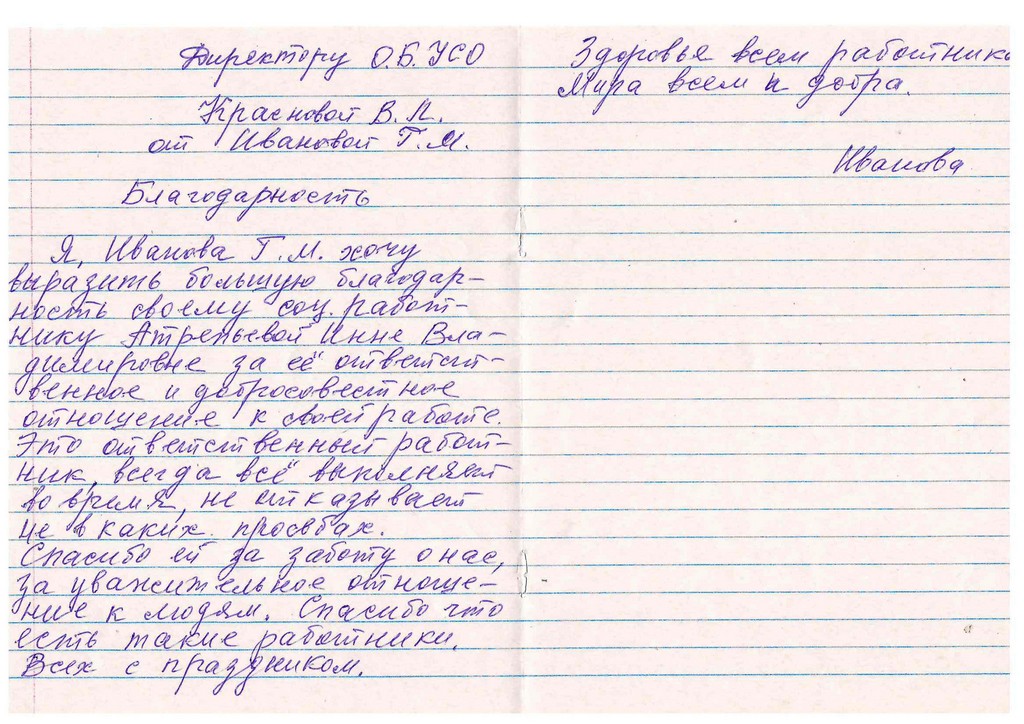 Директору О.Б.УСО
Красновой В.Л.
от Ивановой Г.М.
Благодарность
Я, Иванова Г.М. хочу
выразить большую благодар-
ность своему соц. работ-
нику Атрепьевой Инне Вла-
димировне за её ответст-
венное и добросовестное
отношение к своей работе.
Это ответственный работ-
ник, всегда всё выполняет
во время, не отказывает
не в каких просьбах.
Спасибо ей за заботу о нас,
за уважительное отноше-
ние к людям. Спасибо что
есть такие работники.
Всех с праздником.
Здоровья всем работника
Мира всем и добра.
Иванова